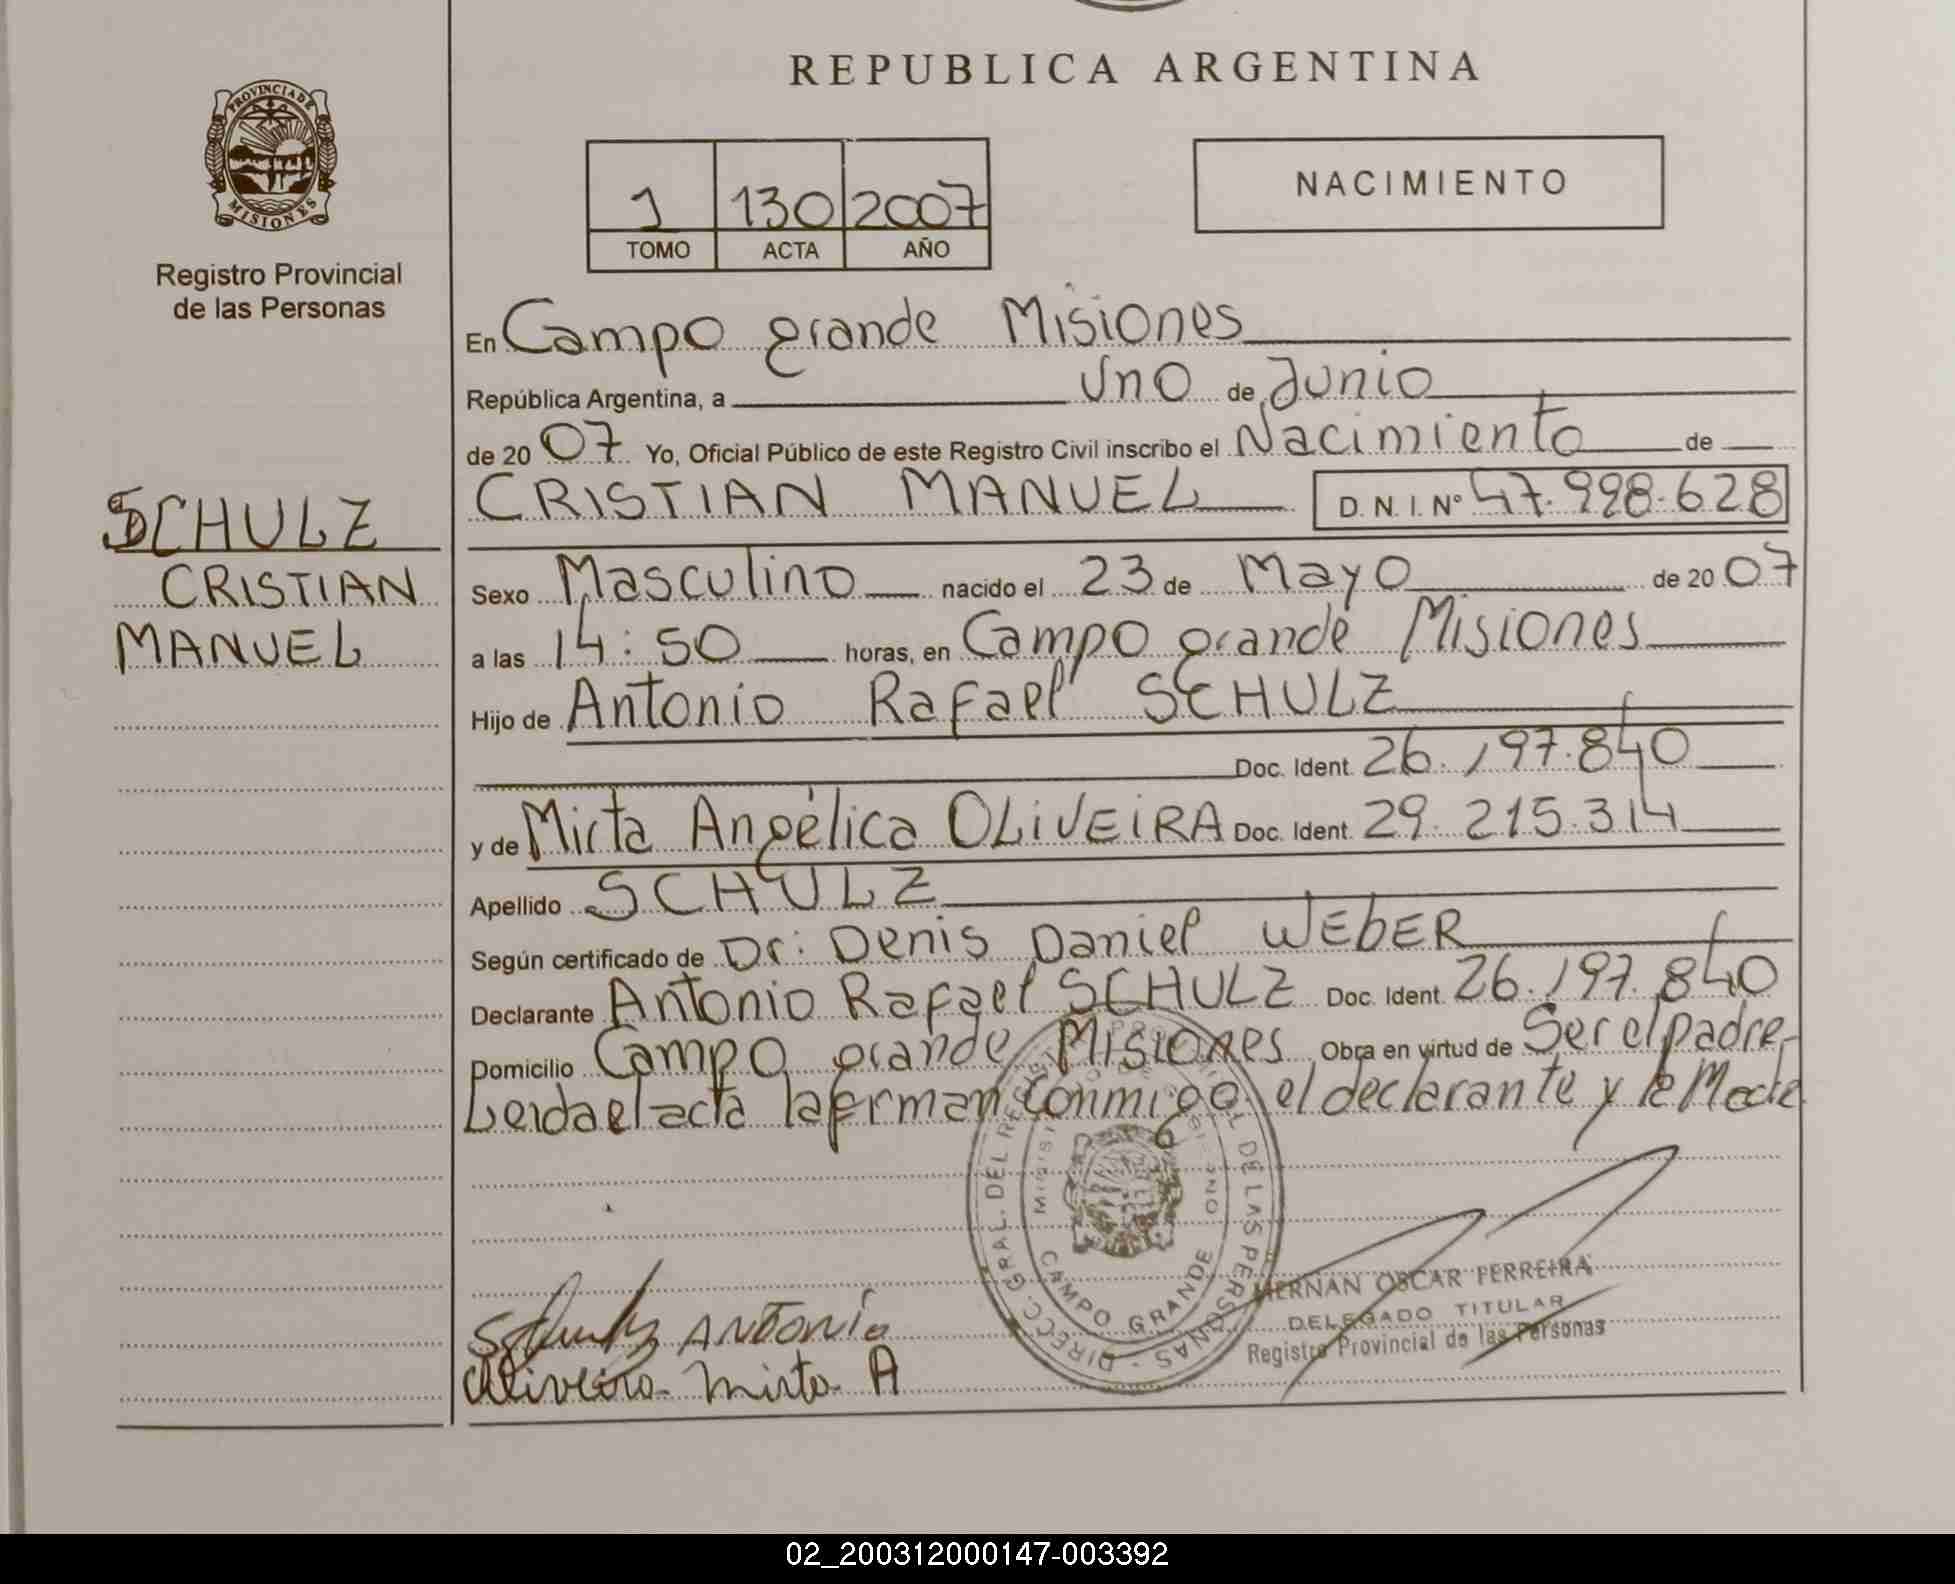 REPUBLICA ARGENTINA
PROVINCIA DE MISIONES
Registro Provincial
de las Personas
1 130 2007
TOMO ACTA AÑO
NACIMIENTO
En Campo grande Misiones
República Argentina, a Uno de Junio
de 20 07 Yo, Oficial Público de este Registro Civil inscribo el Nacimiento de
SCHULZ
CRISTIAN
MANUEL
CRISTIAN MANUEL D. N. I. Nº 47.998.628
Sexo Masculino nacido el 23 de Mayo de 20 07
a las 14:50 horas, en Campo grande Misiones
Hijo de Antonio Rafael SCHULZ
Doc. Ident. 26.197.840
y de Mirta Angélica OLiVEiRA Doc. Ident. 29.215.314
Apellido SCHULZ
Según certificado de Dr: Denis Daniel WEbER
Declarante Antonio Rafael SCHULZ Doc. Ident. 26.197.840
Domicilio Campo grande Misiones Obra en virtud de Ser el padre
Leida el acta la firman conmigo el declarante y la Madre
DIRECC. GRAL. DEL REGISTRO PROVINCIAL DE LAS PERSONAS
MINISTERIO DE GOBIERNO
CAMPO GRANDE
HERNAN OSCAR FERREIRA
DELEGADO TITULAR
Registro Provincial de las Personas
Schulz ANTONiO
Oliveira Mirta A
02_200312000147-003392